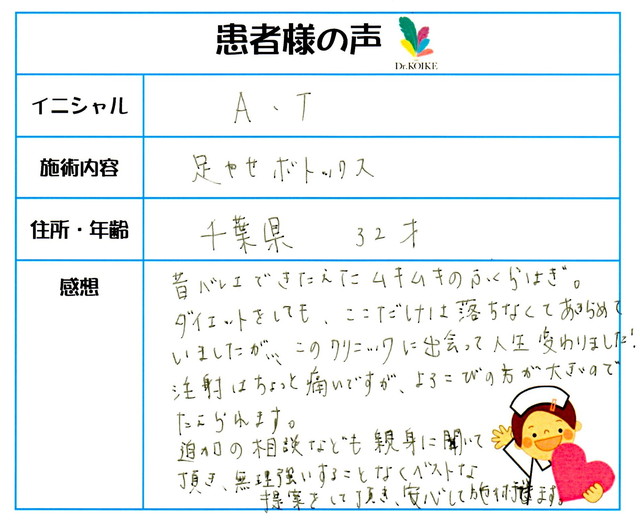 患者様の声
Dr.KOIKE
イニシャル
A.T
施術内容
足やせボトックス
住所・年齢
千葉県 32才
感想
昔バレエできたえたムキムキのふくらはぎ。
ダイエットをしても、ここだけは落ちなくてあきらめて
いましたが、このクリニックに出会って人生変わりました!
注射はちょっと痛いですが、よろこびの方が大きいので
たえられます。
追加の相談なども親身に聞いて
頂き、無理強いすることなくベストな
提案をして頂き、安心して施術